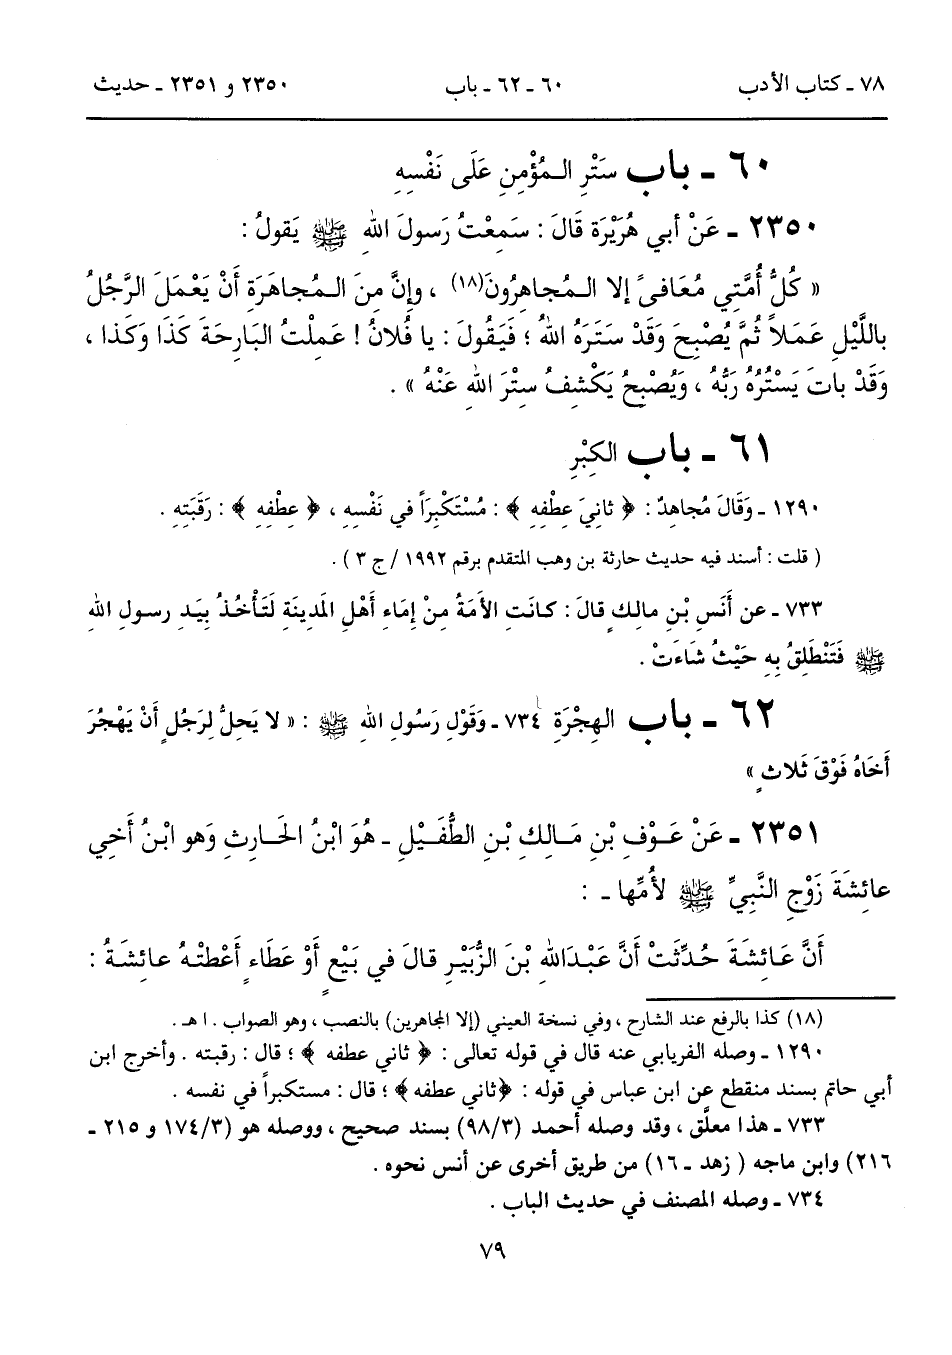 ٧٨ ـ كتاب الأدب ٦٠ ـ ٦٢ ـ باب ٢٣٥٠ و ٢٣٥١ ـ حديث
٦٠ ـ باب سَتْرِ المُؤْمِنِ عَلَى نَفْسِهِ
٢٣٥٠ ـ عَنْ أبي هُرَيْرَة قَالَ : سَمِعْتُ رَسولَ اللهِ ﷺ يَقولُ :
« كُلُّ أُمَّتِي مُعَافىً إلا المُجاهِرُونَ(١٨) ، وإنَّ مِنَ المُجاهَرَةِ أَنْ يَعْمَلَ الرَّجُلُ
باللَّيْلِ عَمَلاً ثُمَّ يُصْبِحَ وَقَدْ سَتَرَهُ اللهُ ؛ فَيَقُولَ : يا فُلانُ ! عَمِلْتُ البَارِحَةَ كَذَا وَكَذا ،
وَقَدْ باتَ يَسْتُرُهُ رَبُّهُ ، وَيُصْبِحُ يَكْشِفُ سِتْرَ اللهِ عَنْهُ » .
٦١ ـ باب الكِبْرِ
١٢٩٠ ـ وَقَالَ مُجاهِدٌ : ﴿ ثانِيَ عِطْفِهِ ﴾ : مُسْتَكْبِرَاً في نَفْسِهِ ، ﴿ عِطْفِهِ ﴾ : رَقَبَتِهِ .
( قلت : أسند فيه حديث حارثة بن وهب المتقدم برقم ١٩٩٢ / ج ٣ ) .
٧٣٣ ـ عن أَنَسِ بْنِ مالِكٍ قالَ : كانَتِ الأَمَةُ مِنْ إمَاءِ أَهْلِ المَدينَةِ لَتَأْخُذُ بِيَدِ رسولِ اللهِ
ﷺ فَتَنْطَلِقُ بِهِ حَيْثُ شَاءَتْ .
٦٢ ـ باب الهِجْرَةِ ٧٣٤ ـ وَقَوْلِ رَسُولِ اللهِ ﷺ : « لا يَحِلُّ لِرَجُلٍ أَنْ يَهْجُرَ
أَخَاهُ فَوْقَ ثَلاثٍ »
٢٣٥١ ـ عَنْ عَوْفِ بْنِ مَالِكِ بْنِ الطُّفَيْلِ ـ هُوَ ابْنُ الحَارِثِ وَهو ابْنُ أَخِي
عائِشَةَ زَوْجِ النَّبِيِّ ﷺ لأُمِّها ـ :
أَنَّ عَائِشَةَ حُدِّثَتْ أَنَّ عَبْدَاللهِ بْنَ الزُّبَيْرِ قالَ في بَيْعٍ أَوْ عَطَاءٍ أَعْطَتْهُ عائِشَةُ :
(١٨) كذا بالرفع عند الشارح ، وفي نسخة العيني (إلا المجاهرين) بالنصب ، وهو الصواب . ا هـ .
١٢٩٠ ـ وصله الفريابي عنه قال في قوله تعالى : ﴿ ثاني عطفه ﴾ ؛ قال : رقبته . وأخرج ابن
أبي حاتم بسند منقطع عن ابن عباس في قوله : ﴿ثاني عطفه﴾ ؛ قال : مستكبراً في نفسه .
٧٣٣ ـ هذا معلَّق ، وقد وصله أحمد (٩٨/٣) بسند صحيح ، ووصله هو (١٧٤/٣ و ٢١٥ ـ
٢١٦) وابن ماجه ( زهد ـ ١٦) من طريق أخرى عن أنس نحوه .
٧٣٤ ـ وصله المصنف في حديث الباب .
٧٩